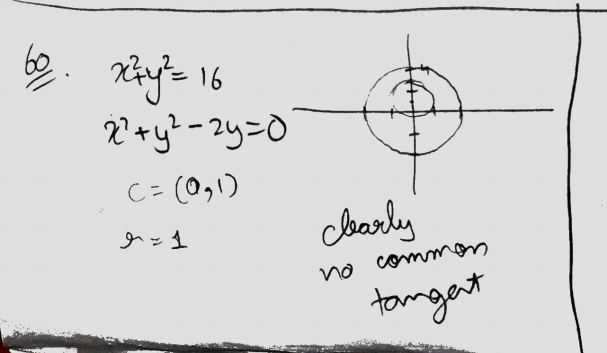 60.
x²+y²= 16
x²+y²-2y=0
c= (0,1)
r= 1
4
clearly
no common
tangent